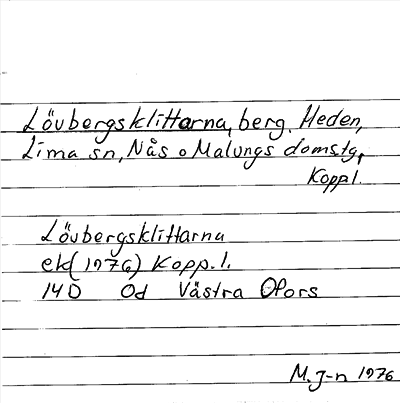 Lövbergsklittarna, berg. Heden,
Lima sn, Nås o Malungs domstg,
Koppl.
Lövbergsklittarna
ek (1976) Kopp. l.
14D Od Västra Ofors
M. J-n 1976